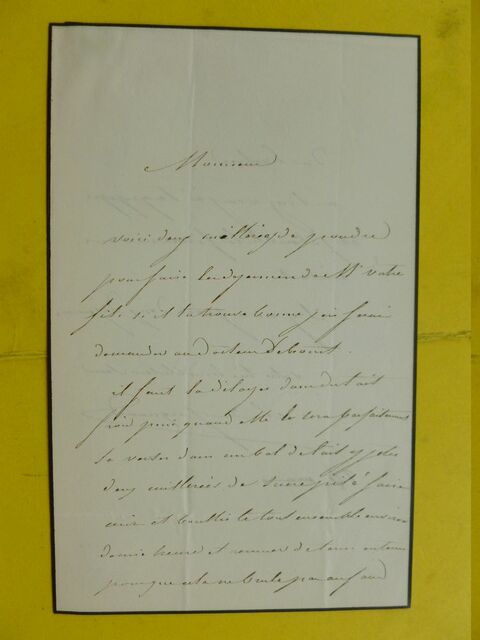 Monsieur
voici deux cuillerées de poudre
pour faire le dejeuner de Mr votre
fils si il la trouve bonne j'en ferai
demander au docteur
il faut la délayer dans du lait
froid puis quand elle le sera parfaitement
la verser dans un bol de lait y
deux cuillerées de sucre faire
cuire et bouillir le tout ensemble environ
demie heure et remuer de tems en tems
pour que cela ne brule pas au fond